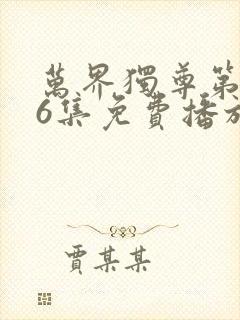 萬界獨尊第
6集免費播放
賈某某